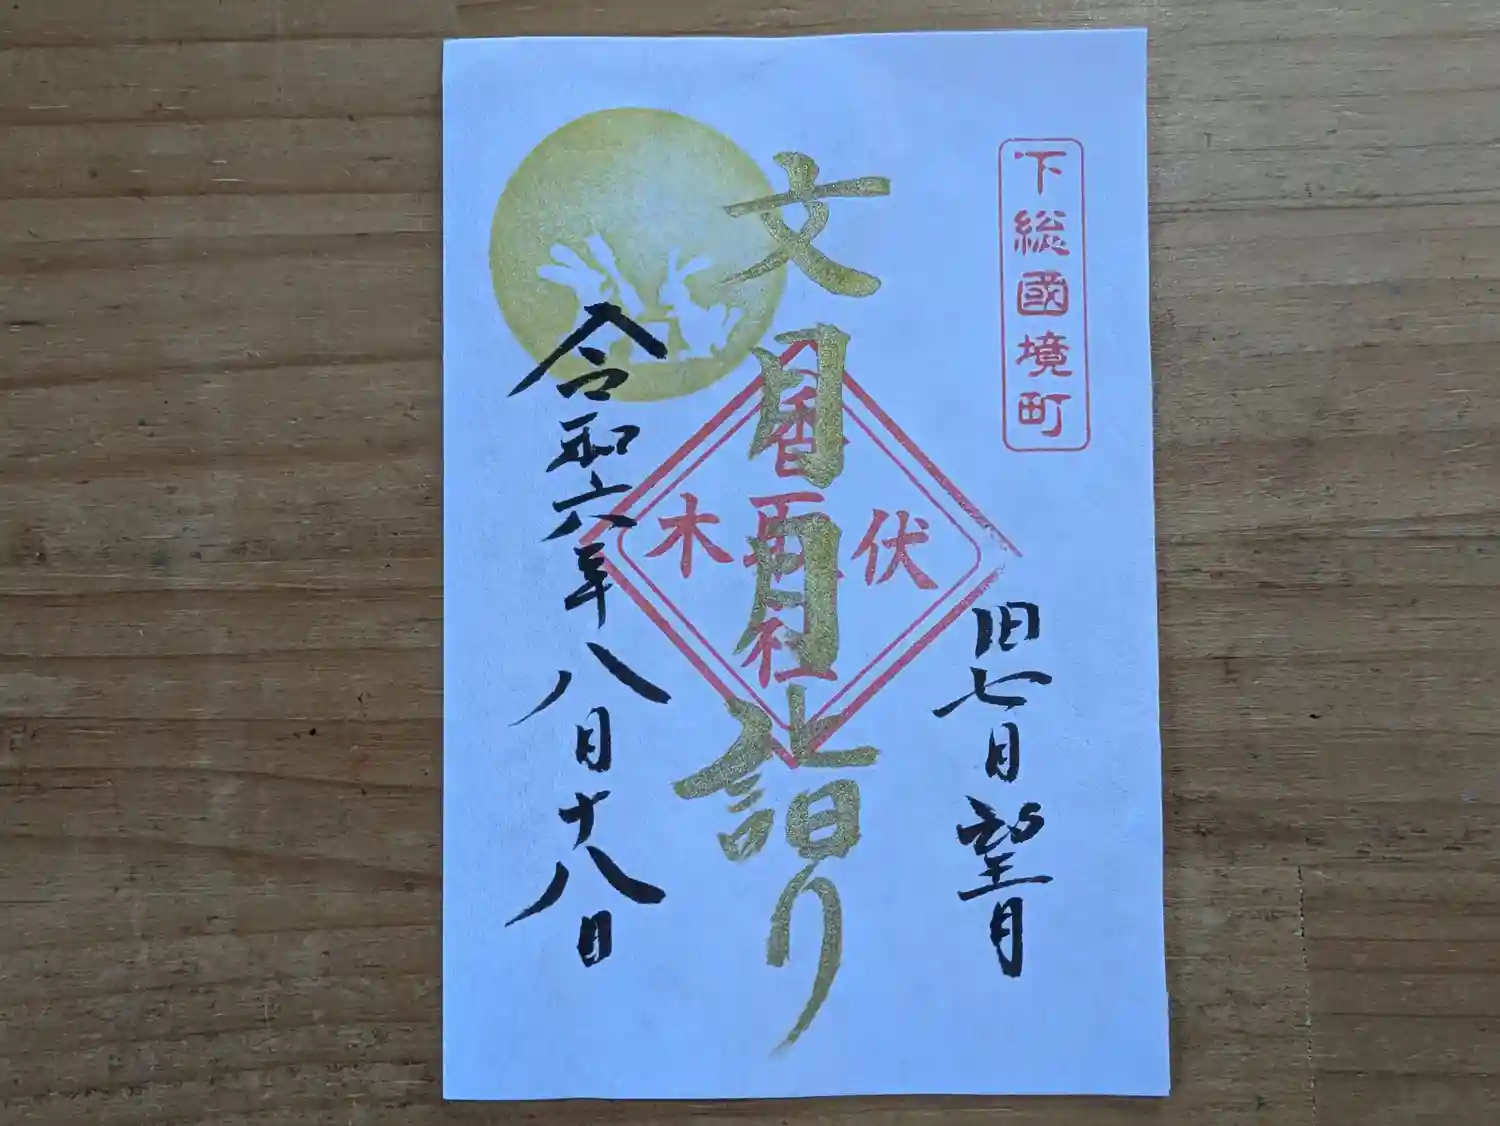 下総國境町
旧七月望月
文月月詣り
伏木
香取社
令和六年八月十八日